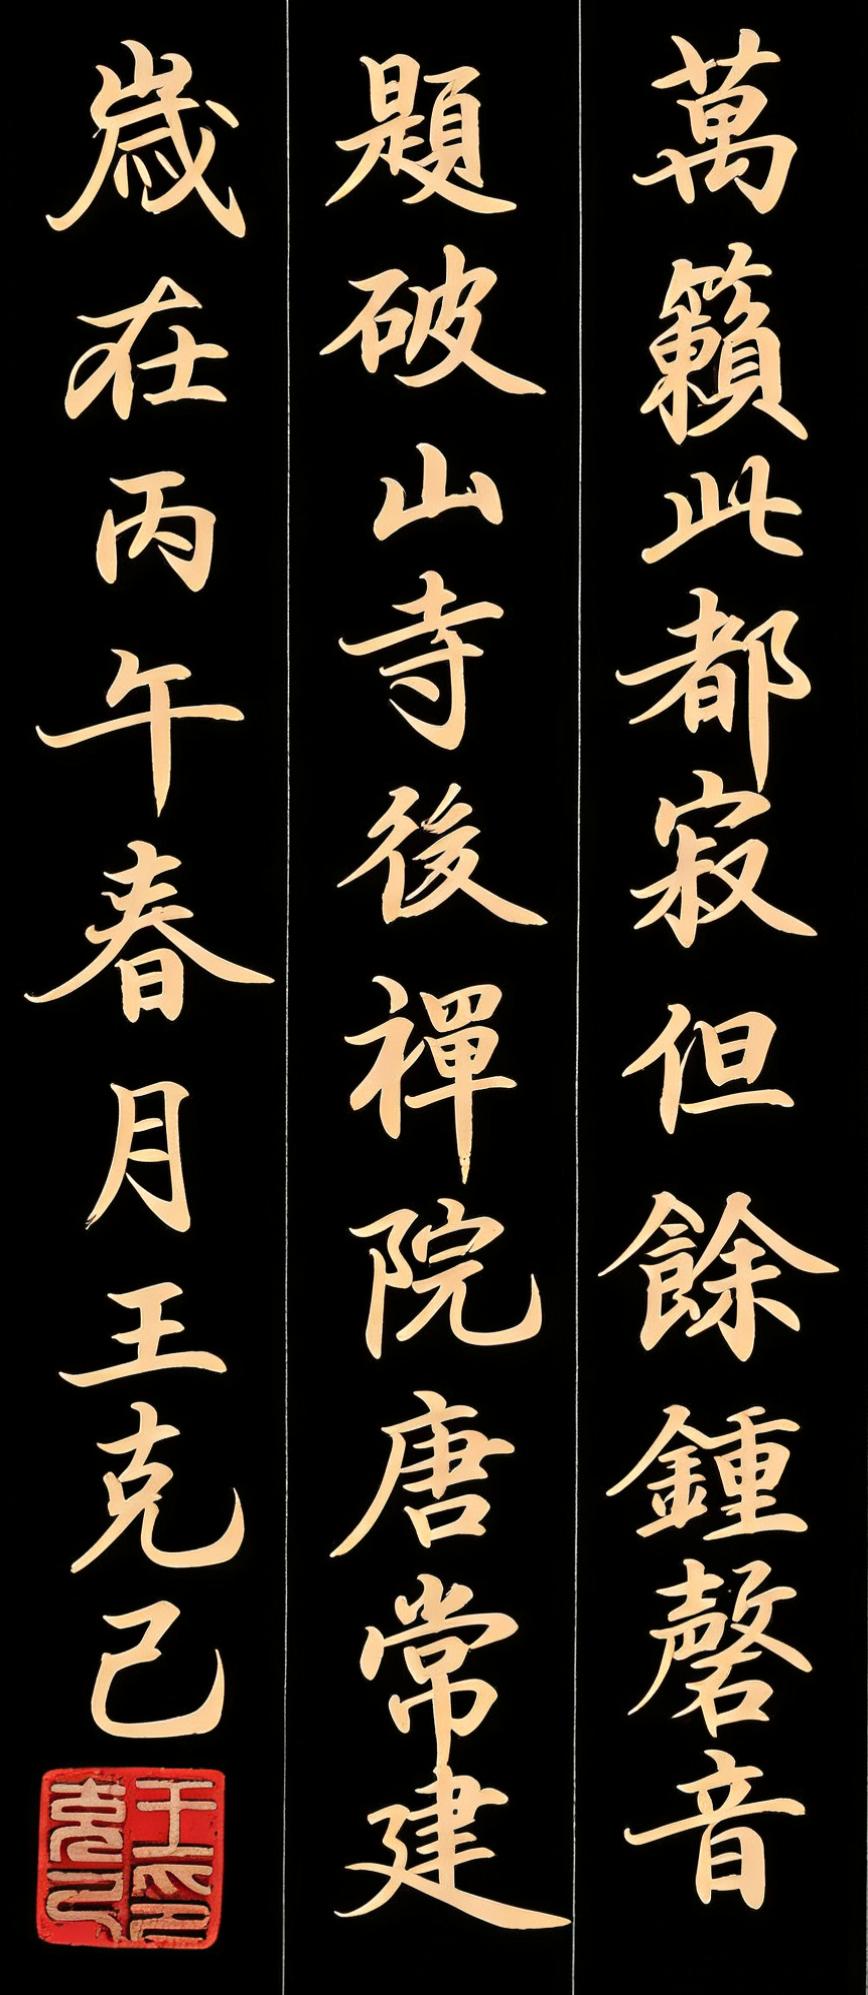 萬籟此都寂但餘鍾磬音
題破山寺後禪院唐常建
歲在丙午春月王克己
王印克己